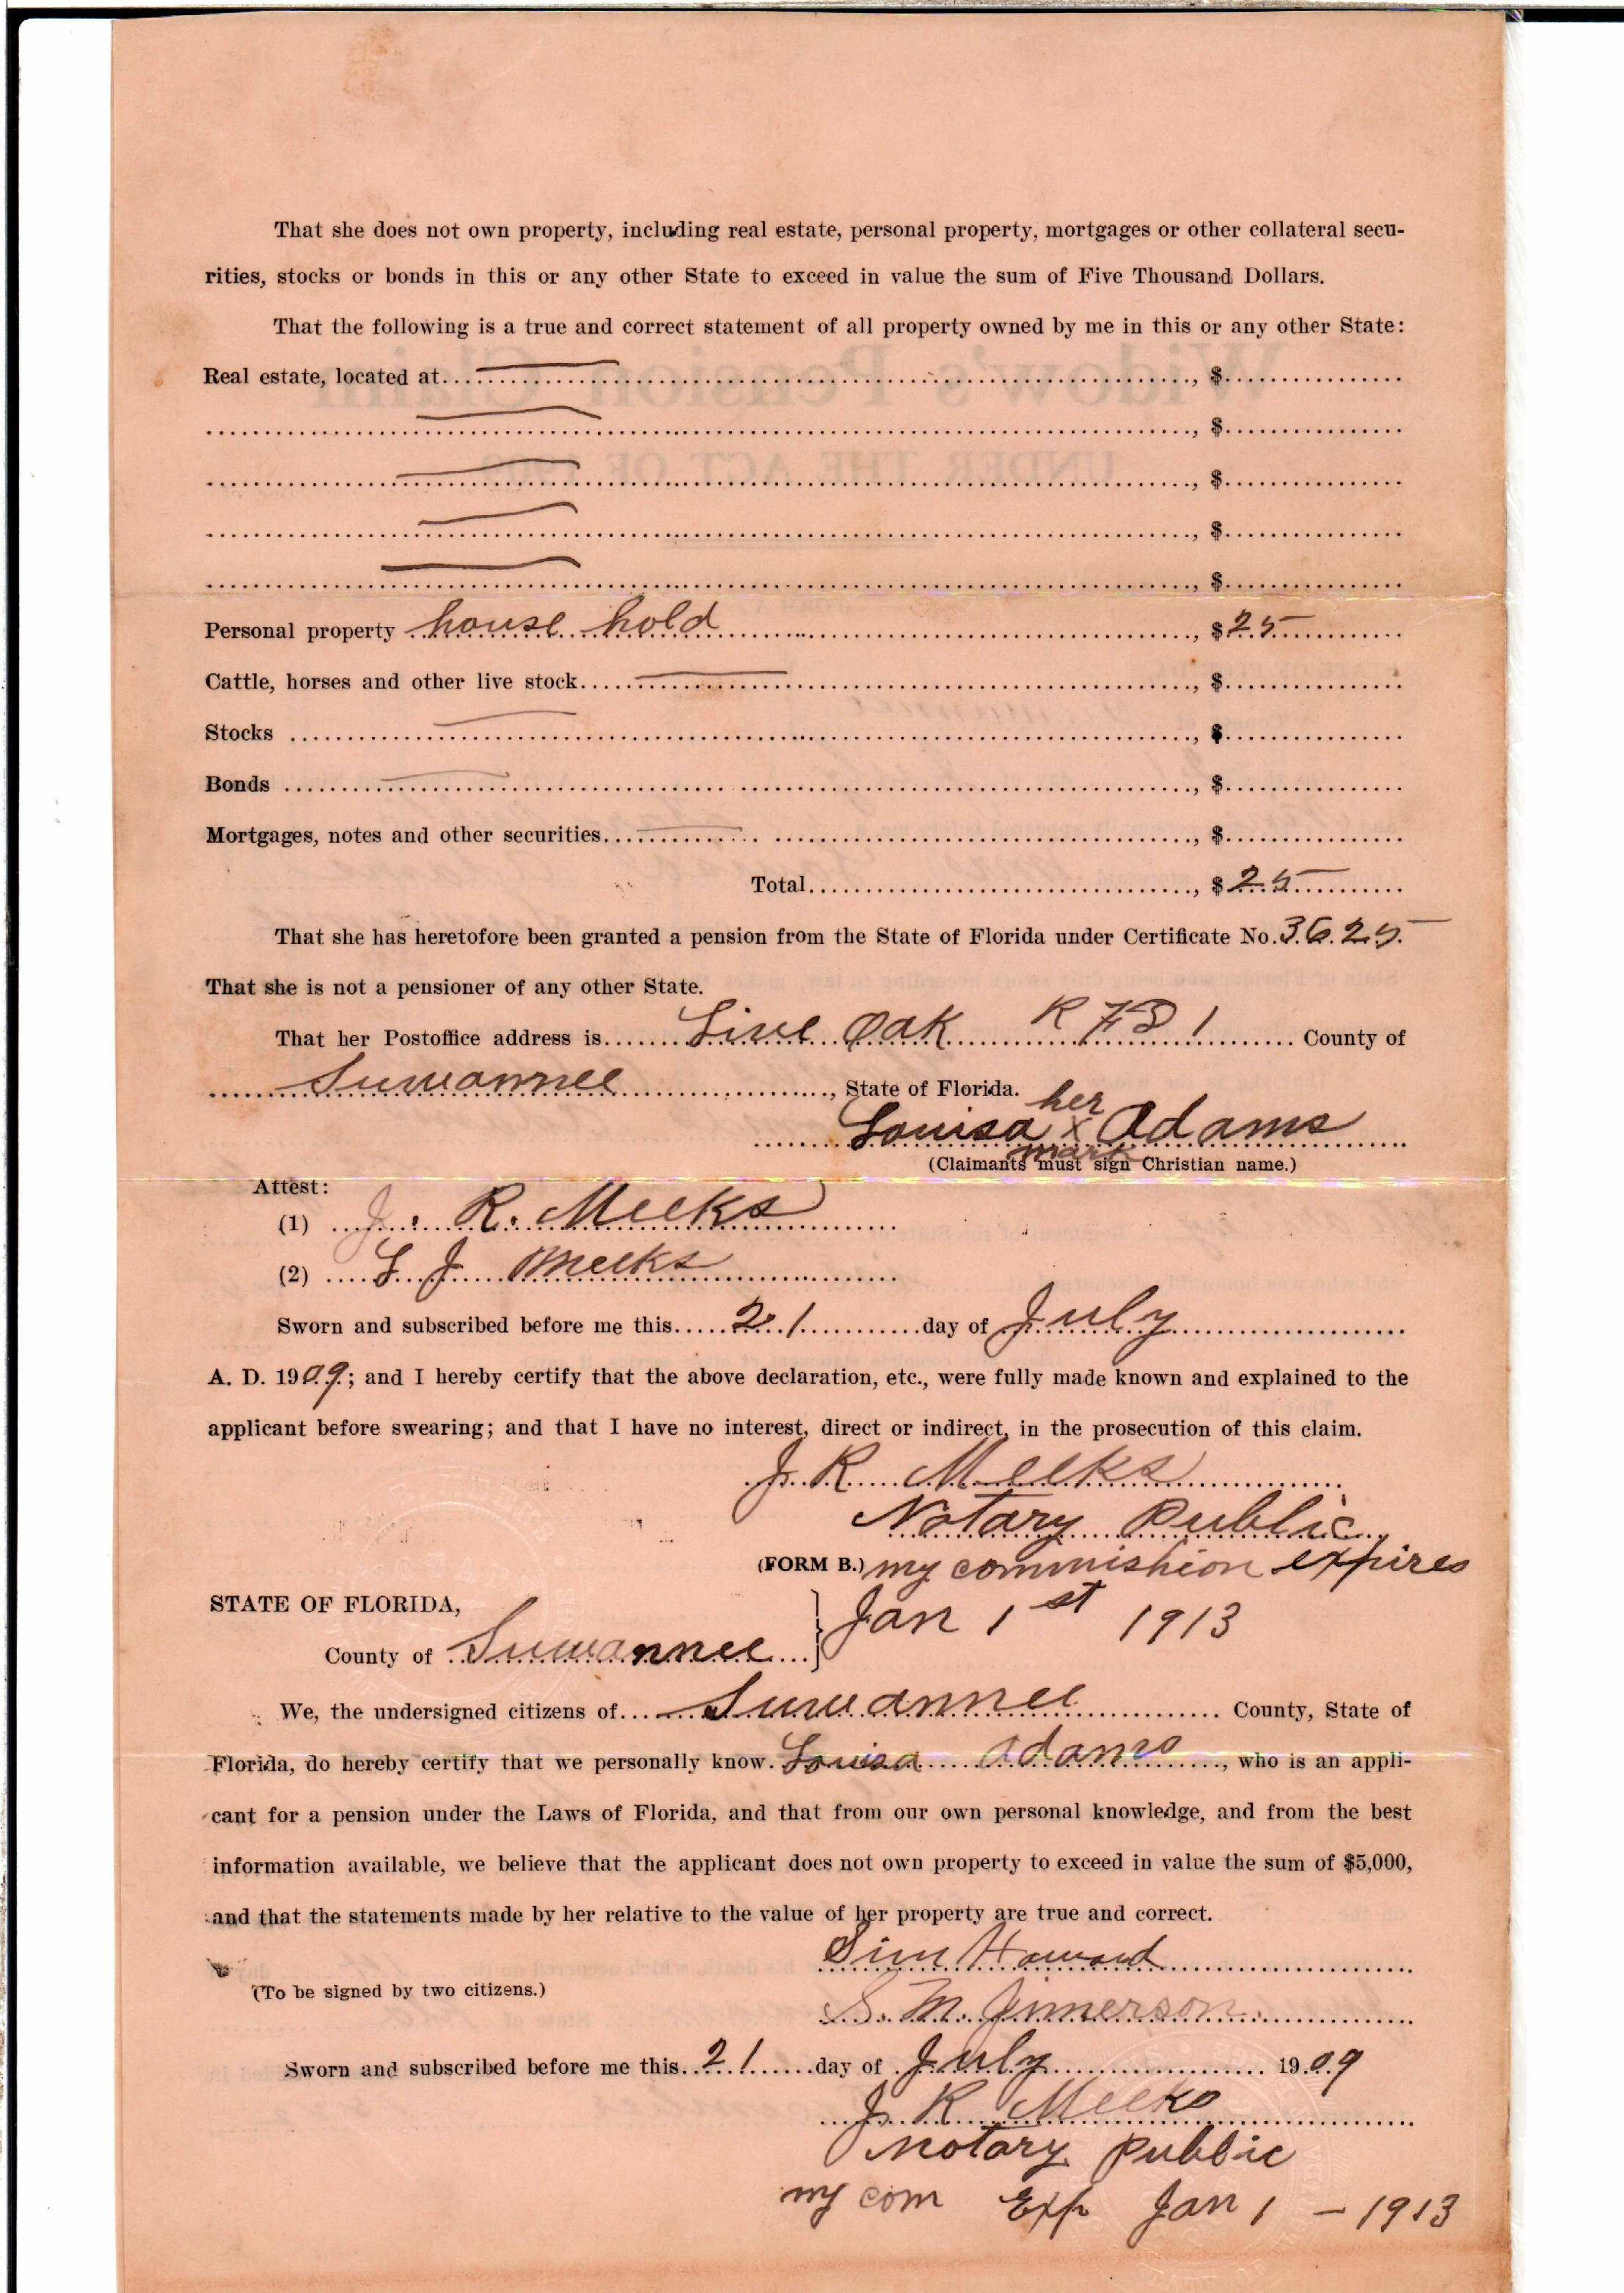 That she does not own property, including real estate, personal property, mortgages or other collateral secu-
rities, stocks or bonds in this or any other State to exceed in value the sum of Five Thousand Dollars.
That the following is a true and correct statement of all property owned by me in this or any other State:
Real estate, located at........, $........
........, $........
........, $........
........, $........
........, $........
Personal property house hold, $25
Cattle, horses and other live stock........, $........
Stocks ........, $........
Bonds ........, $........
Mortgages, notes and other securities........, $........
Total........, $25
That she has heretofore been granted a pension from the State of Florida under Certificate No. 3625
That she is not a pensioner of any other State.
That her Postoffice address is Live Oak R F D 1 County of
Suwannee, State of Florida.
her
Louisa x Adams
mark
(Claimants must sign Christian name.)
Attest:
(1) J. R. Meeks
(2) L J Meeks
Sworn and subscribed before me this 21 day of July
A. D. 1909; and I hereby certify that the above declaration, etc., were fully made known and explained to the
applicant before swearing; and that I have no interest, direct or indirect, in the prosecution of this claim.
J. R. Meeks
Notary Public
(FORM B.) my commishion expires
Jan 1st 1913
STATE OF FLORIDA,
County of Suwannee
We, the undersigned citizens of Suwannee County, State of
Florida, do hereby certify that we personally know Louisa Adams, who is an appli-
cant for a pension under the Laws of Florida, and that from our own personal knowledge, and from the best
information available, we believe that the applicant does not own property to exceed in value the sum of $5,000,
and that the statements made by her relative to the value of her property are true and correct.
Sim Howard
(To be signed by two citizens.)
S. M. Jinnerson
Sworn and subscribed before me this 21 day of July 1909
J. R. Meeks
Notary Public
my com Exp Jan 1 - 1913